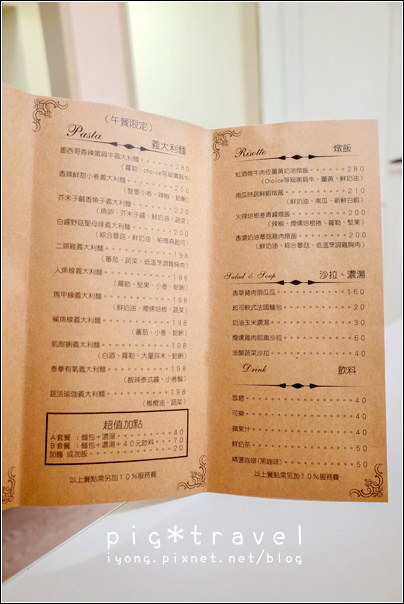 （午餐限定）
Pasta 義大利麵
墨西哥香辣嫩肩牛義大利麵 280
（蘿勒、choice等級嫩肩牛）
香辣鮮甜小卷義大利麵 200
（整隻小卷、辣椒、蛤蜊）
芥末籽鹹香魚子義大利麵 220
（魚卵、芥末子醬、鮮奶油、蔬菜）
白醬野菇聖母峰義大利麵 200
（綜合蕈菇、鮮奶油、帕瑪森起司）
二頭雞義大利麵 198
（蕃茄、蔬菜、低溫烹調雞胸肉）
人魚線義大利麵 198
（蘿勒、堅果、小卷、蛤蜊）
馬甲線義大利麵 198
（鮮奶油、煙燻培根、蘿勒）
鯊魚線義大利麵 198
（蕃茄、小卷、蛤蜊）
肌耐蜊義大利麵 198
（白酒、蘿勒、大量蒜末、蛤蜊）
泰拳有氧義大利麵 198
（酸辣泰式醬、小卷鬚）
蔬活瑜珈義大利麵 198
（橄欖油、蔬菜）
超值加點
A套餐：麵包+濃湯 40
B套餐：麵包+濃湯+40元飲料 70
加麵 或加飯 20
以上餐點需另加10%服務費
Risotto 燉飯
紅酒燉牛肉佐薑黃奶油燉飯 280
（Choice等級嫩肩牛、薑黃、鮮奶油）
南瓜時蔬鮮蝦燉飯 210
（鮮奶油、南瓜、新鮮白蝦）
火辣培根卷青醬燉飯 200
（辣椒、煙燻培根捲、蘿勒、堅果）
香濃奶油蕈菇雞肉燉飯 200
（鮮奶油、綜合蕈菇、低溫烹調雞胸肉）
Salad & Soup 沙拉、濃湯
香草豬肉頂瓜瓜 160
起司軟式法國麵包 20
奶油玉米濃湯 30
煙燻雞肉凱撒沙拉 60
油醋蔬菜沙拉 40
Drink 飲料
雪碧 40
可樂 40
蘋果汁 40
鮮奶茶 50
精選咖啡（黑咖啡） 50
以上餐點需另加10%服務費
pig*travel
iyong.pixnet.net/blog